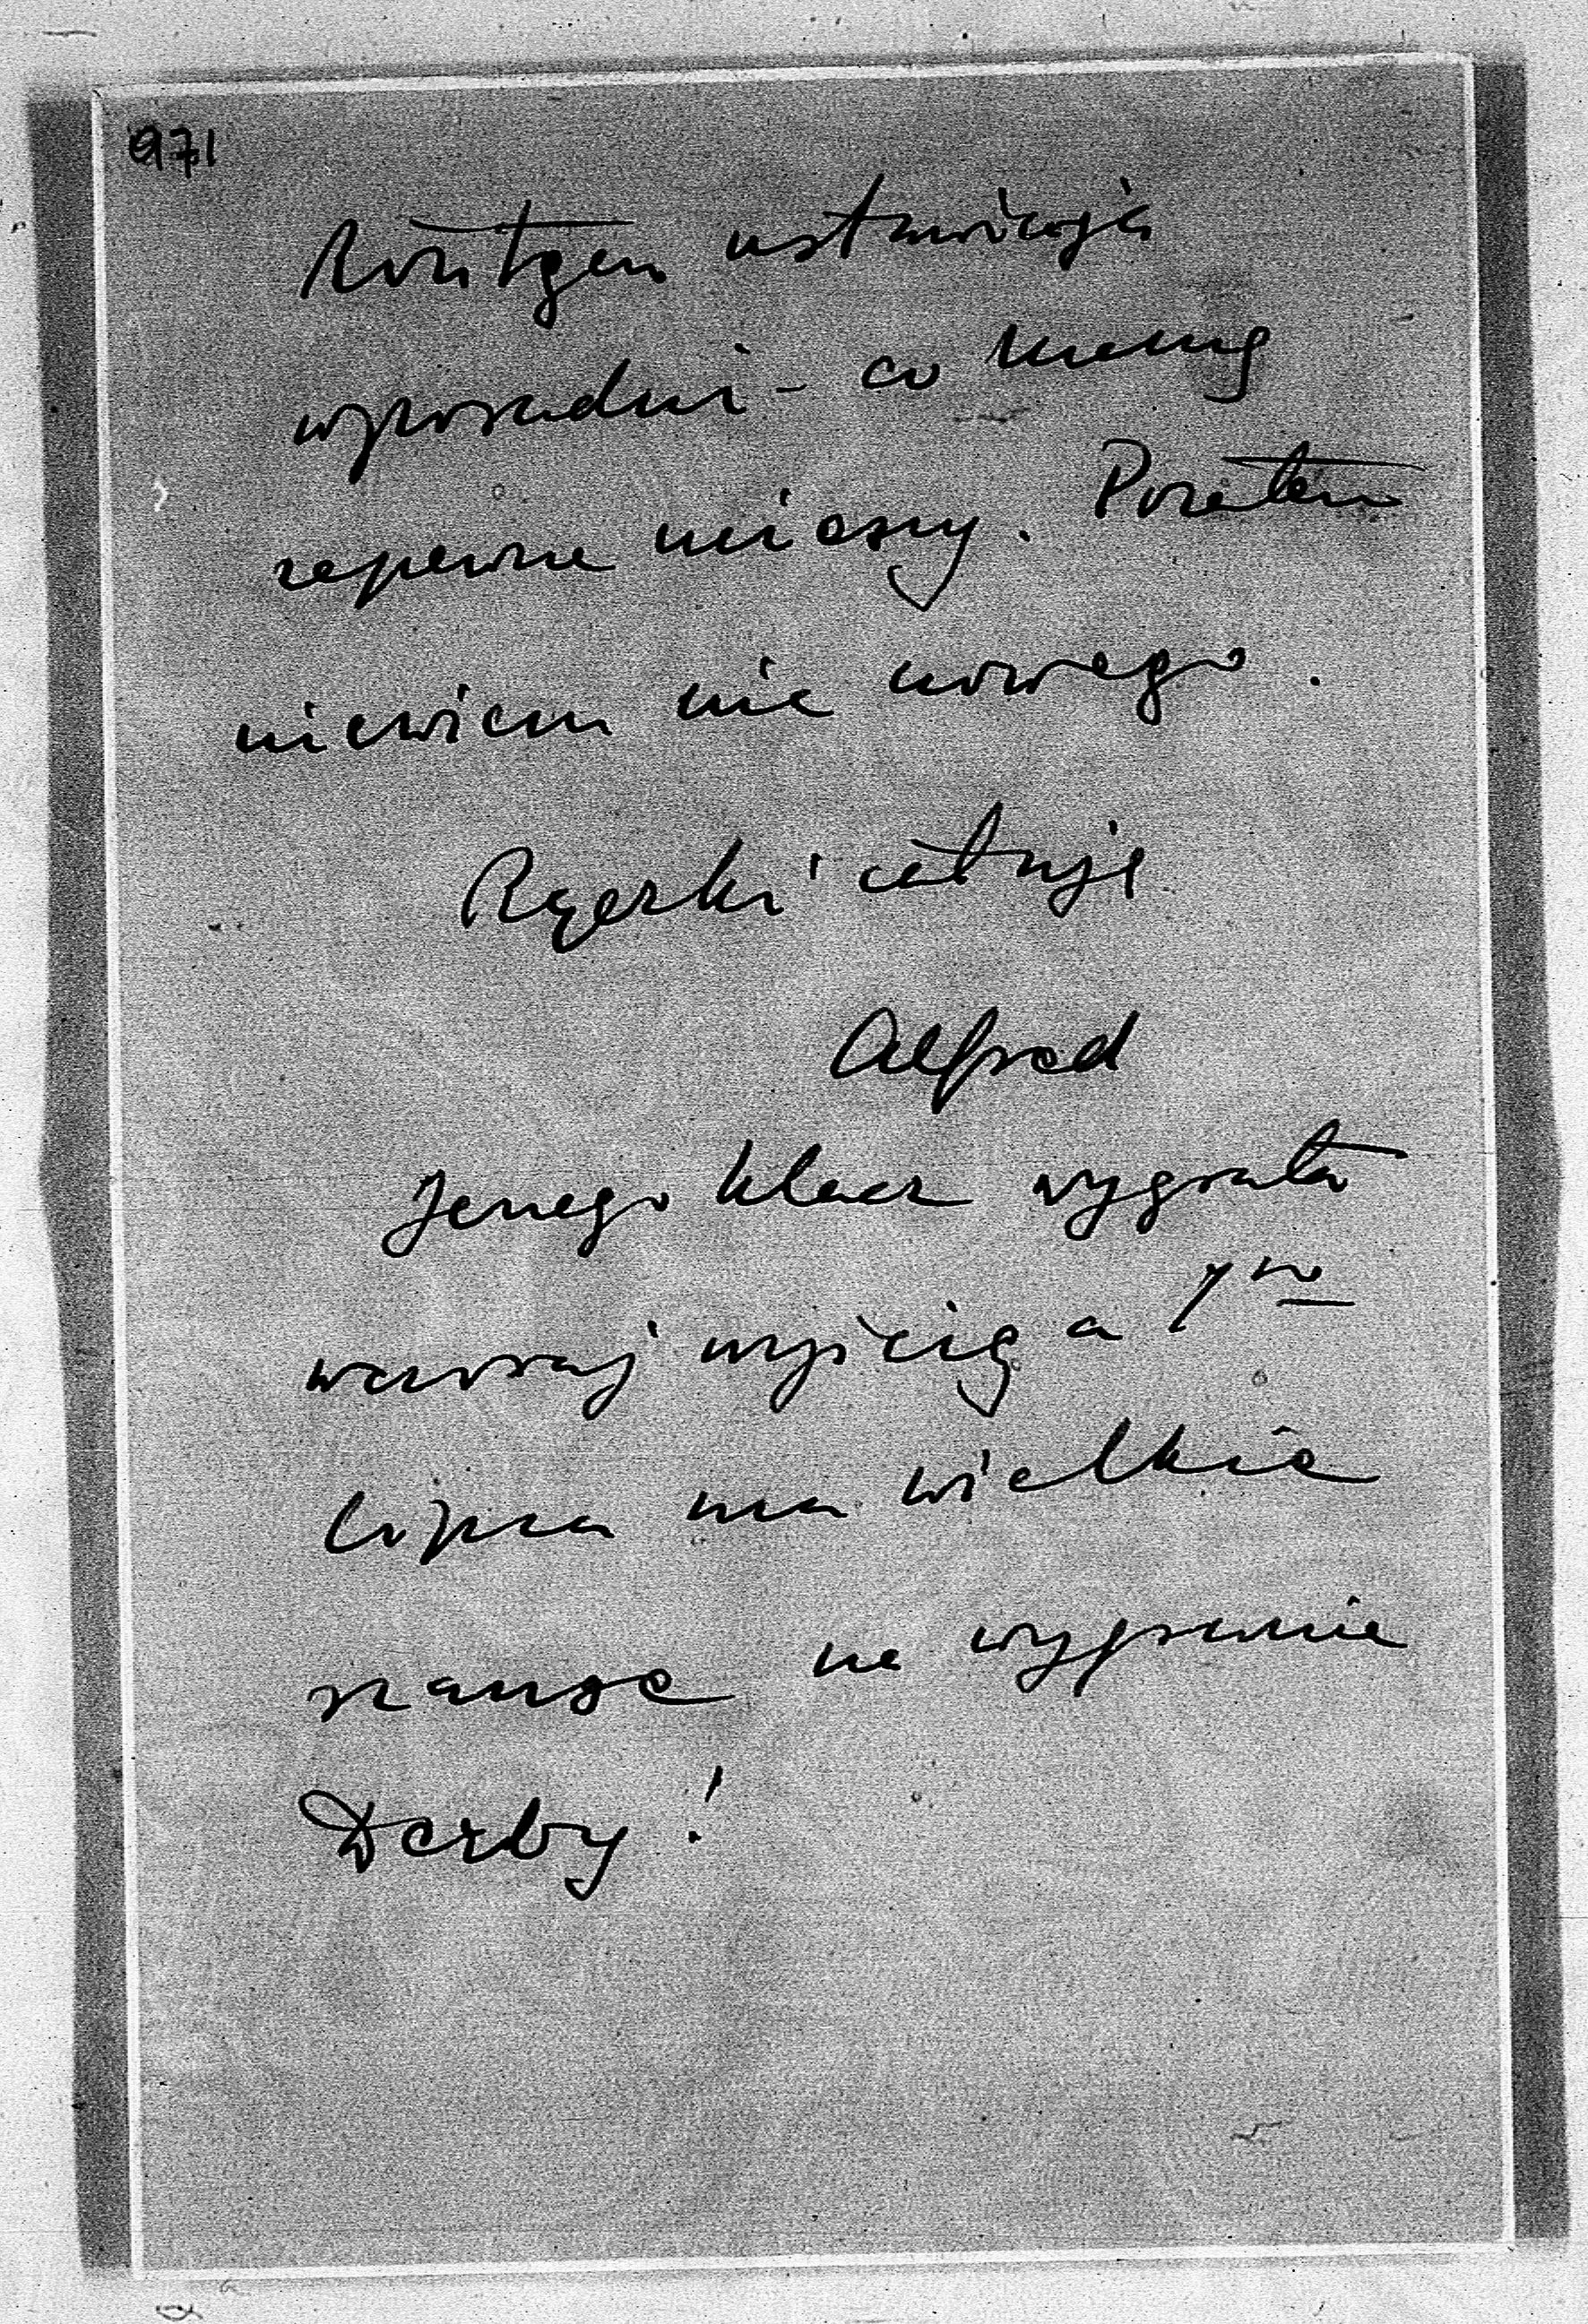 971
Röntgen ustawiają
wporzadni - co Mamę
zapewne ucieszy. Pozatem
niewiem nic nowego.
Rączki całuję
Alfred
Jerzego klacz wygrała
wczoraj wyścig a 1go
lipca ma wielkie
szanse na wygranie
Derby!